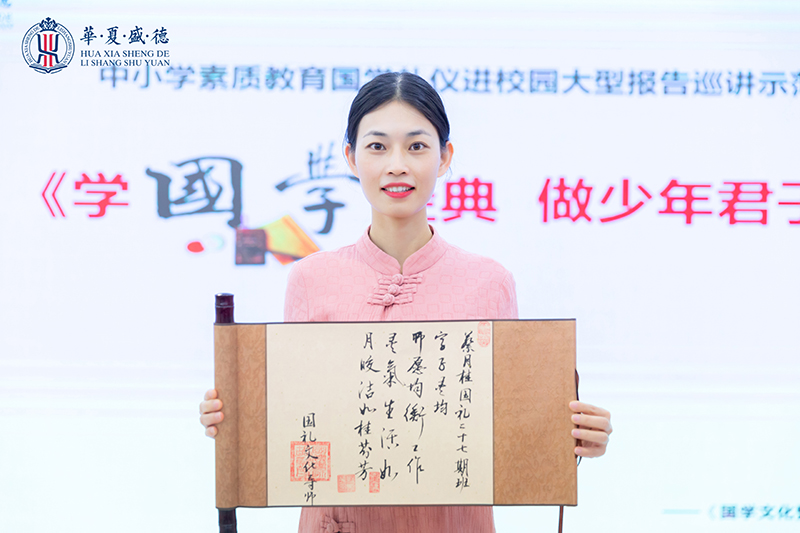 華·夏·盛·德
HUA XIA SHENG DE
LI SHANG SHU YUAN
中小学素质教育国学礼仪进校园大型报告巡讲示
《学國學典 做少年君子
蔡月桂国礼二十七期班
字子灵均
愿均衡工作
灵氣生活如
月皎洁如桂芬芳
国礼文化导师
——《国学文化